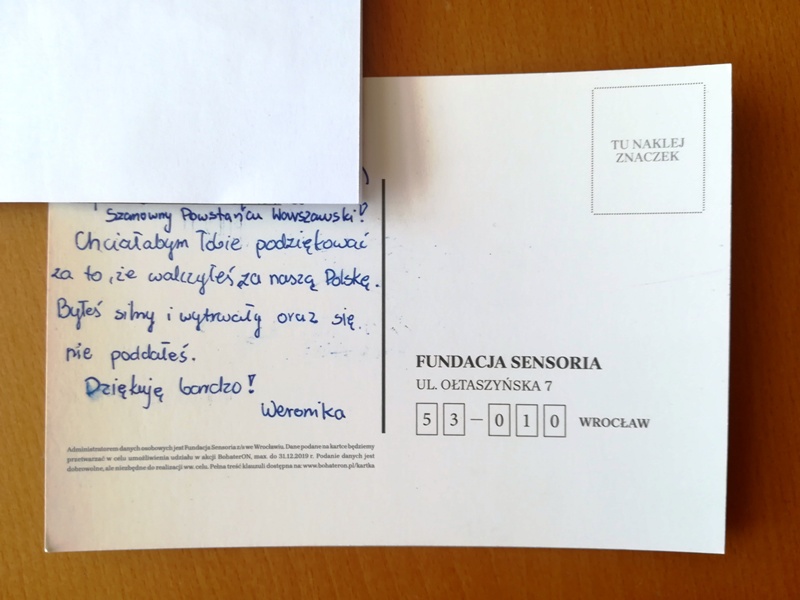 Szanowny Powstańcu Warszawski!
Chciałabym Tobie podziękować
za to, że walczyłeś za naszą Polskę.
Byłeś silny i wytrwały oraz się
nie poddałeś.
Dziękuję bardzo!
Weronika
Administratorem danych osobowych jest Fundacja Sensoria z/s we Wrocławiu. Dane podane na kartce będziemy
przetwarzać w celu umożliwienia udziału w akcji BohaterON, max. do 31.12.2019 r. Podanie danych jest
dobrowolne, ale niezbędne do realizacji ww. celu. Pełna treść klauzuli dostępna na: www.bohateron.pl/kartka
TU NAKLEJ
ZNACZEK
FUNDACJA SENSORIA
UL. OŁTASZYŃSKA 7
53-010 WROCŁAW